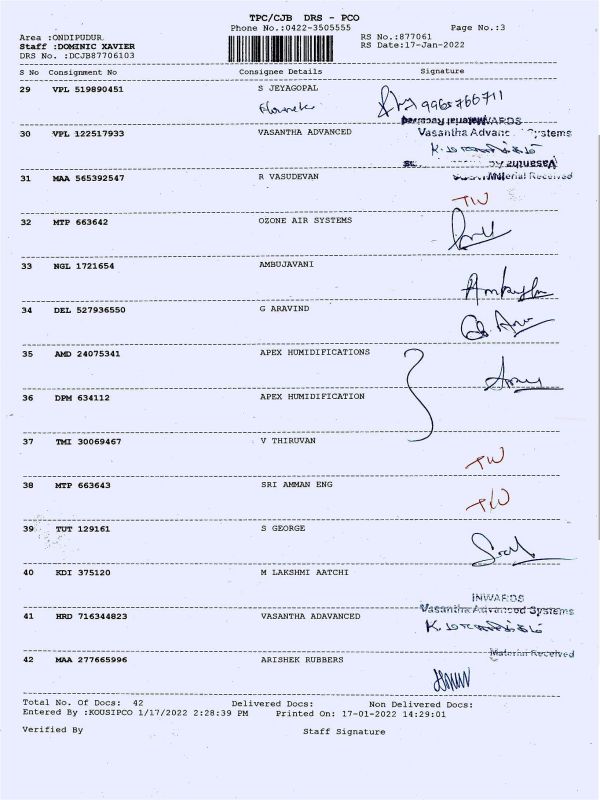 TPC/CJB DRS - PCO
Phone No.:0422-3505555 Page No.:3
Area :ONDIPUDUR RS No.:877061
Staff :DOMINIC XAVIER RS Date:17-Jan-2022
DRS No. :DCJB87706103
S No Consignment No Consignee Details Signature
29 VPL 519890451 S JEYAGOPAL
INWARDS
Material Received
30 VPL 122517933 VASANTHA ADVANCED Vasantha Advanc Systems
Vasantha
31 MAA 565392547 R VASUDEVAN Material Received
TW
32 MTP 663642 OZONE AIR SYSTEMS
33 NGL 1721654 AMBUJAVANI
34 DEL 527936550 G ARAVIND
35 AMD 24075341 APEX HUMIDIFICATIONS
36 DPM 634112 APEX HUMIDIFICATION
37 TMI 30069467 V THIRUVAN
TW
38 MTP 663643 SRI AMMAN ENG
TW
39 TUT 129161 S GEORGE
40 KDI 375120 M LAKSHMI AATCHI
INWARDS
41 HRD 716344823 VASANTHA ADAVANCED Vasantha Advanced Systems
Material Received
42 MAA 277665996 ARISHEK RUBBERS
Total No. Of Docs: 42 Delivered Docs: Non Delivered Docs:
Entered By :KOUSIPCO 1/17/2022 2:28:39 PM Printed On: 17-01-2022 14:29:01
Verified By Staff Signature